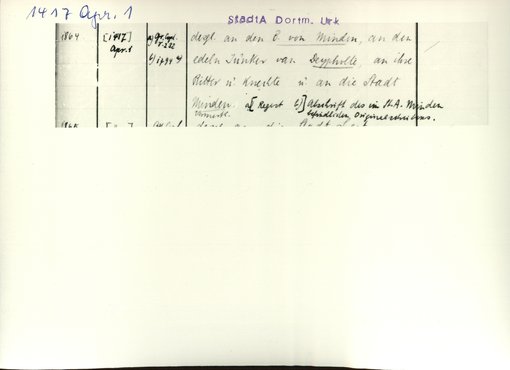 1417 Apr. 1
StadtA Dortm. Urk
1864 [1417] Apr. 1
desgl. an den B. von Minden, an den
edeln Junker van Deypholte, an ihre
Ritter u. Knechte u. an die Stadt
Minden. a[ Regest b)] Abschrift des im St.A. Minden
befindlichen Originalschreibens.